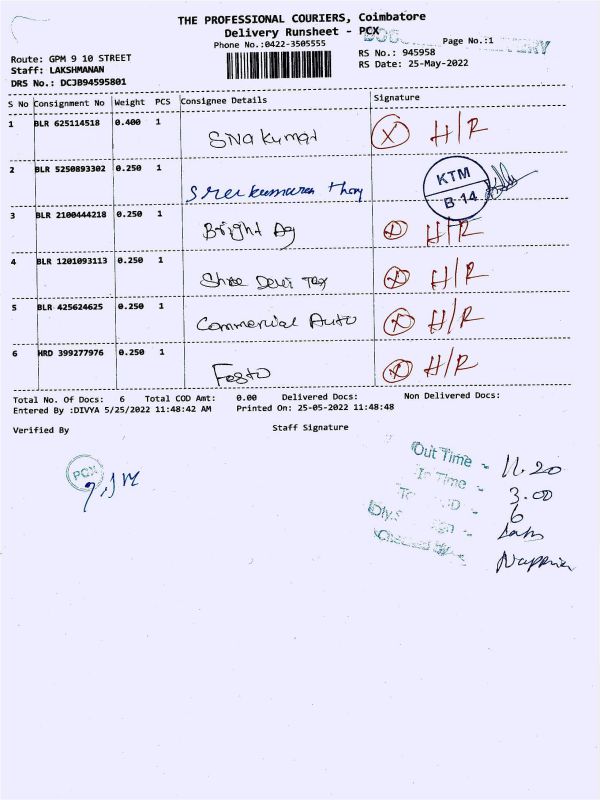 THE PROFESSIONAL COURIERS, Coimbatore
Delivery Runsheet - PCX
Phone No.:0422-3505555
Page No.:1
Route: GPM 9 10 STREET
RS No.: 945958
Staff: LAKSHMANAN
RS Date: 25-May-2022
DRS No.: DCJB94595801
S No Consignment No Weight PCS Consignee Details Signature
1 BLR 625114518 0.400 1 Siva kumar X H/R
2 BLR 5250893302 0.250 1 Sreekumaran KTM B-14
3 BLR 2100444218 0.250 1 Bright Ag X H/R
4 BLR 1201093113 0.250 1 Shree Devi Tex X H/R
5 BLR 425624625 0.250 1 Commercial Auto X H/R
6 HRD 399277976 0.250 1 Festo X H/R
Total No. Of Docs: 6 Total COD Amt: 0.00 Delivered Docs: Non Delivered Docs:
Entered By :DIVYA 5/25/2022 11:48:42 AM Printed On: 25-05-2022 11:48:48
Verified By Staff Signature
PCX
Out Time - 11.20
In Time - 3.00
6